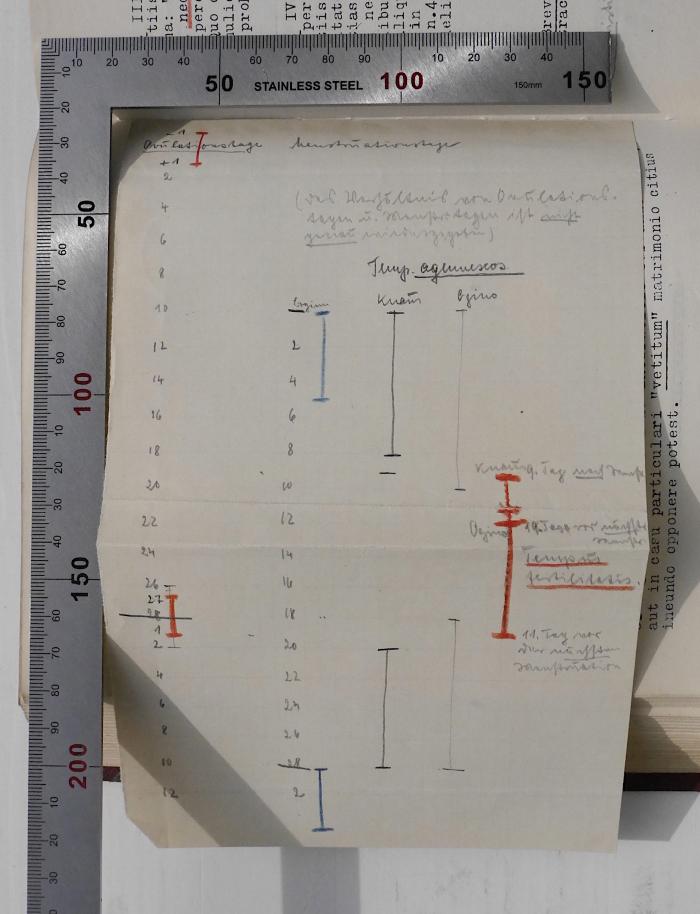 III
tiis
IV
per
iis
tat
ias
ne
ibu
liq
in
n.4
10 20 30 40 50 60 70 80 90 100 10 20 30 40 150
STAINLESS STEEL
150mm
10
20
30
40
50
60
70
80
90
100
10
20
30
40
150
60
70
80
90
200
10
20
30
40
50
Ovulationstage Menstruationstage
+1
2
4
6
8
10
12
14
16
18
20
22
24
26
27
28
1
2
4
6
8
10
12
(Das Verhältnis von Ovulations-
tagen u. Menstr.tagen ist nicht
genau wiedergegeben)
Temp. agenneseos
Beginn Knaus Ogino
2
4
6
8
10
12
14
16
18
20
22
24
26
28
2
Knaus 9. Tag nach Menstr
Ogino 19. Tag vor nächster
Menstr
Tempus
fertilitatis.
11. Tag vor
der nächsten
Menstruation
aut in casu particulari "vetitum" matrimonio citius
ineundo opponere potest.